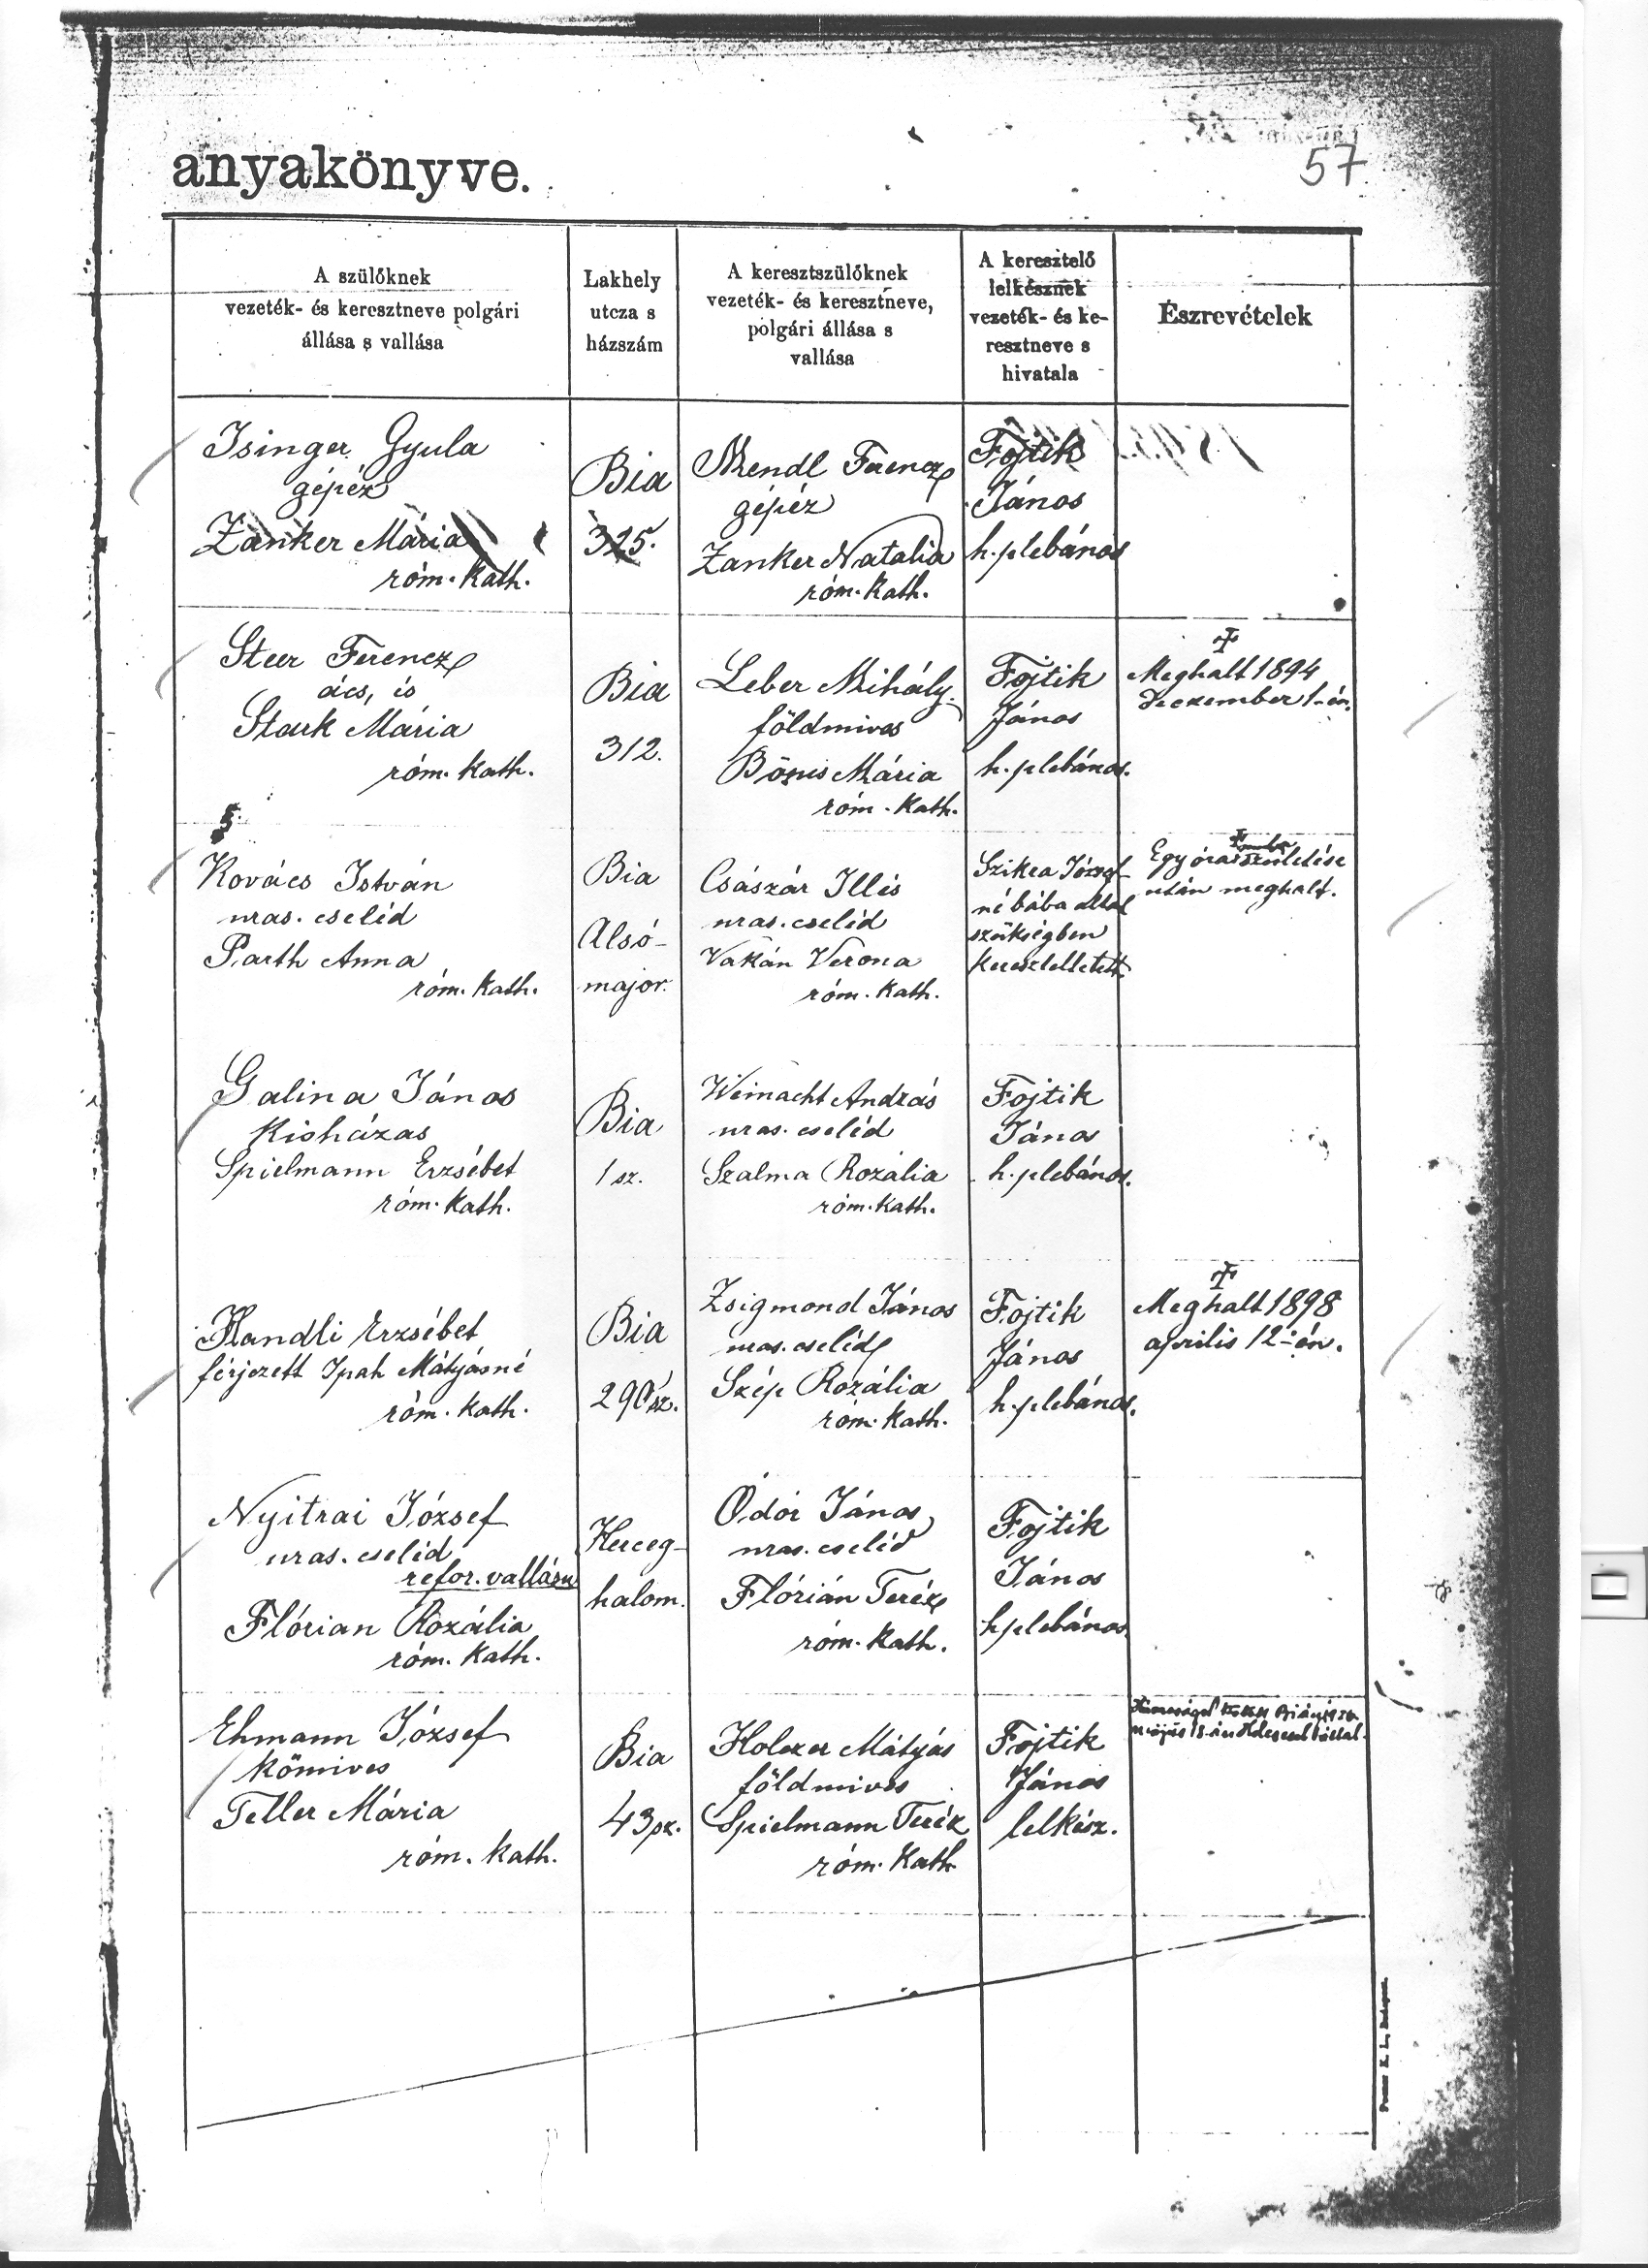 57
anyakönyve.
A szülőknek
vezeték- és keresztneve polgári
állása s vallása
Lakhely
utcza s
házszám
A keresztszülőknek
vezeték- és keresztneve,
polgári állása s
vallása
A keresztelő
lelkésznek
vezeték- és ke-
resztneve s
hivatala
Észrevételek
Isinger Gyula
gépéz
Zanker Mária
róm. kath.
Bia
325.
Mendl Ferencz
gépéz
Zanker Natalia
róm. kath.
Fojtik
János
h. plebános
Steer Ferencz
ács, és
Stark Mária
róm. kath.
Bia
312.
Leber Mihály
földmives
Mária
róm. kath.
Fojtik
János
h. plebános.
Meghalt 1894
Deczember 1-én.
Kovács István
uras. cseléd
Parth Anna
róm. kath.
Bia
Alsó-
major.
Császár Illés
uras. cseléd
Vakán Verona
róm. kath.
József-
né bába által
szükségben
kereszteltetett
Egy óra születése
után meghalt.
Galina János
kisházas
Spielmann Erzsébet
róm. kath.
Bia
1 sz.
Weinacht András
uras. cseléd
Szalma Rozália
róm. kath.
Fojtik
János
h. plebános.
Handli Erzsébet
férjezett Ipah Mátyásné
róm. kath.
Bia
290 sz.
Zsigmond János
uras. cseléd
Szép Rozália
róm. kath.
Fojtik
János
h. plebános.
Meghalt 1898
április 12-én.
Nyitrai József
uras. cseléd
refor. vallásu
Flórian Rozália
róm. kath.
Herceg-
halom.
Ódor János
uras. cseléd
Flórián Teréz
róm. kath.
Fojtik
János
h. plebános.
Ehmann József
kőmives
Teller Mária
róm. kath.
Bia
43 sz.
Holczer Mátyás
földmives
Spielmann Teréz
róm. kath.
Fojtik
János
lelkész.
Házasságot Bián
május